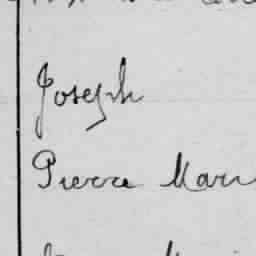 Joseph
Pierre Mari